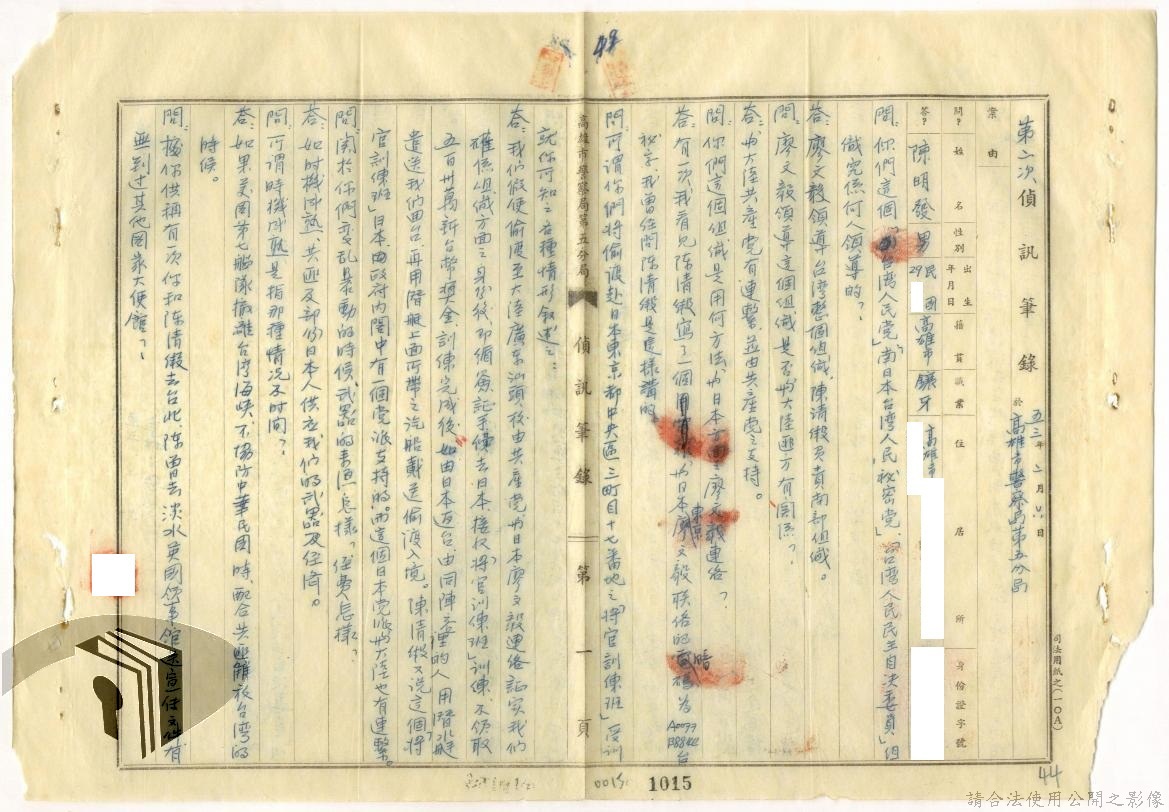 49
第二次偵訊筆錄
五三年二月廿八日
於高雄市警察局第五分局
案由
問?
姓名
性別
出生年月日
籍貫
職業
住居所
身份證字號
答?
陳明發
男
民國29
高雄市
鑲牙
高雄市
問:你們這個「台湾人民党」「南日本台湾人民秘密党」「台湾人民民主自决委員」組
織究係何人領導的?
答:廖文毅領導台湾整個組織,陳清緞負責南部組織。
問:廖文毅領導這個組織是否與大陸匪方有関係?
答:与大陸共產党有連繫,並由共產党之支持。
問:你們這個組織是用何方法与日本方面之廖文毅連洛?
答:有一次我看見陳清緞寫了一個
与日本東京廖文毅联络的暗
為A0097
B8842台
秘字我曾经問陳清緞是這樣講的
問:可謂你們將偷渡赴日本東京都中央區三町目十七番地之「將官訓練班」受訓
高雄市警察局第五分局 偵訊筆錄 第一頁
就你可知之各種情形叙述之:
答:我们假使偷渡至大陸廣东汕頭後由共產党与日本廖文毅連络証实我们
確係組織方面之身份後即備簽証手續去日本,接收「將官訓練班」訓練,不領取
五百卅萬新台幣獎金,訓練完成後,如由日本返台由同陣
的人用潛水艇
遣送我们回台,再用潛艇上面所帶之汽船載送偷渡入境。陳清緞又說這個「將
官訓練班」日本由政府内閣中有一個党派支持的,而這個日本党派與大陸也有連繫。
問:関於你們变乱暴動的時候,武器的来源怎樣?經費怎樣?
答:如時機成熟,共匪及部份日本人供应我们的武器及经济。
問:所謂時機成熟是指那種情况和时間?
答:如果美國第七艦隊撤離台湾海峡,不協防中華民國時,配合共匪解放台湾的
時候。
問:據你供稱有一次你和陈清緞去台北,陈曾去淡水英國領事館遞宣传文件,有
無到过其他國家大使館?
司法用紙之(一〇A)
0015
1015
44
請合法使用公開之影像